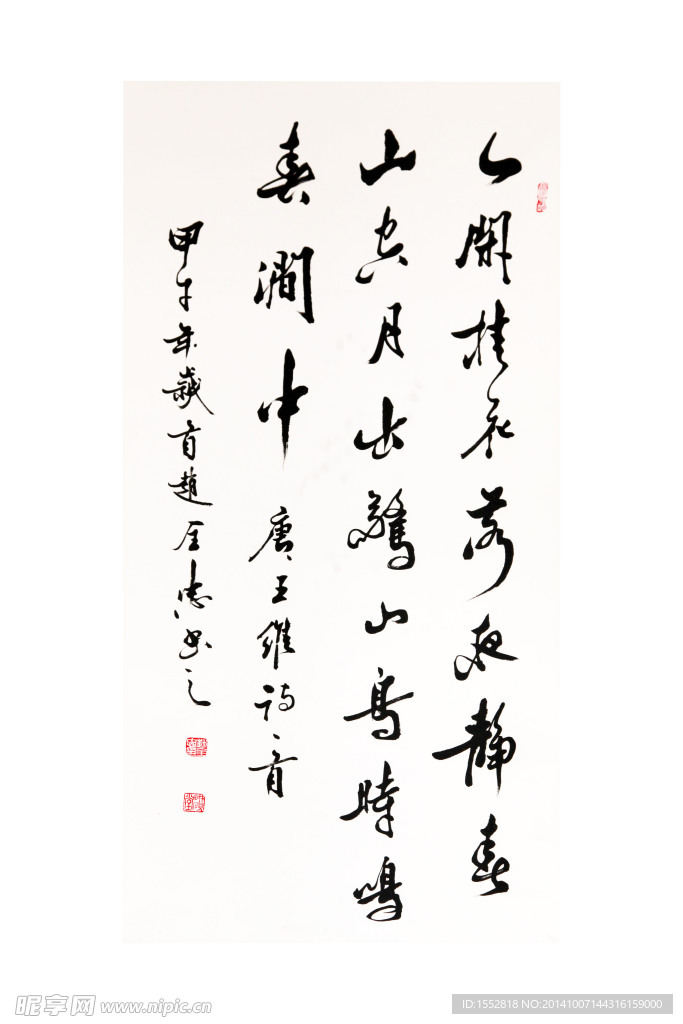 人閒桂花落夜靜春
山空月出驚山鳥時鳴
春澗中 唐王維詩一首
甲午年歲首趙 志書之
昵享网 www.nipic.cn
ID:1552818 NO:20141007144316159000